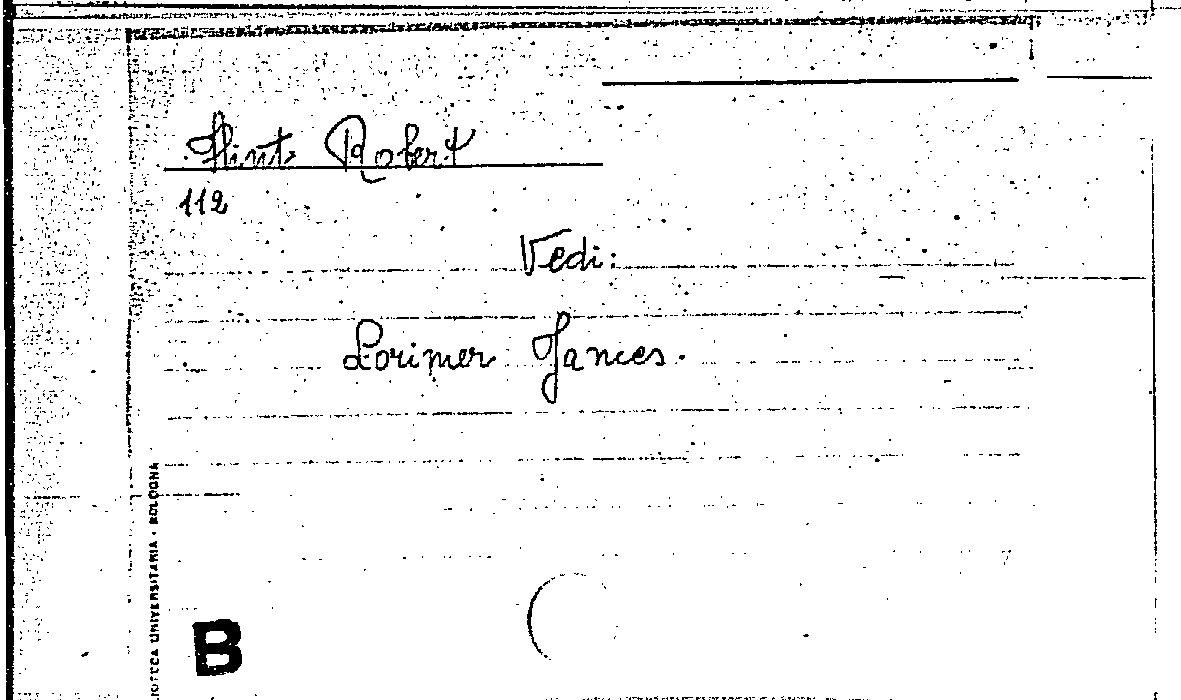 Flint Robert
112
Vedi:
Lorimer James.
BIBLIOTECA UNIVERSITARIA - BOLOGNA
B